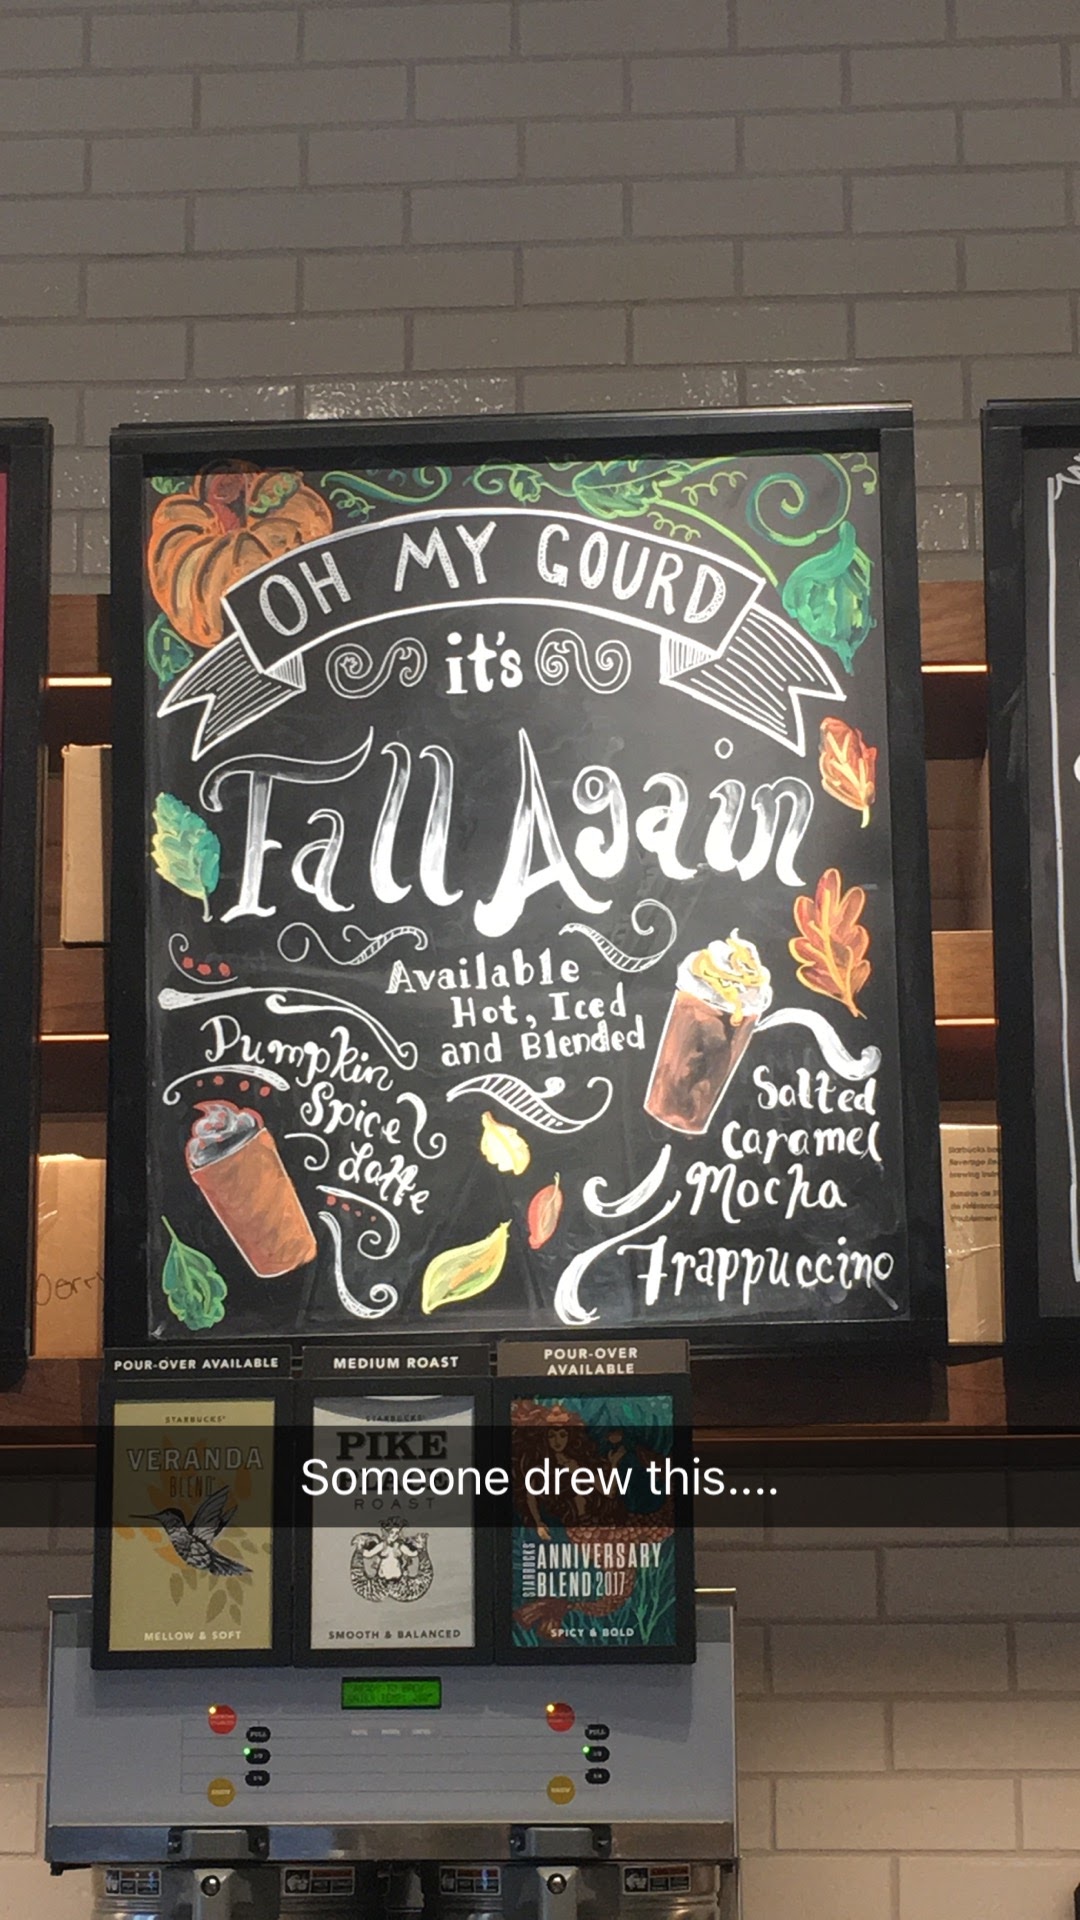 OH MY GOURD
it's
Fall Again
Available
Hot, Iced
and Blended
Pumpkin
Spice
Latte
Salted
Caramel
Mocha
Frappuccino
POUR-OVER AVAILABLE
STARBUCKS®
VERANDA
BLEND®
MELLOW & SOFT
MEDIUM ROAST
STARBUCKS®
PIKE
ROAST
SMOOTH & BALANCED
POUR-OVER
AVAILABLE
STARBUCKS
ANNIVERSARY
BLEND 2017
SPICY & BOLD
Someone drew this....
FULL
1/2
FULL
1/2
BREW
BREW